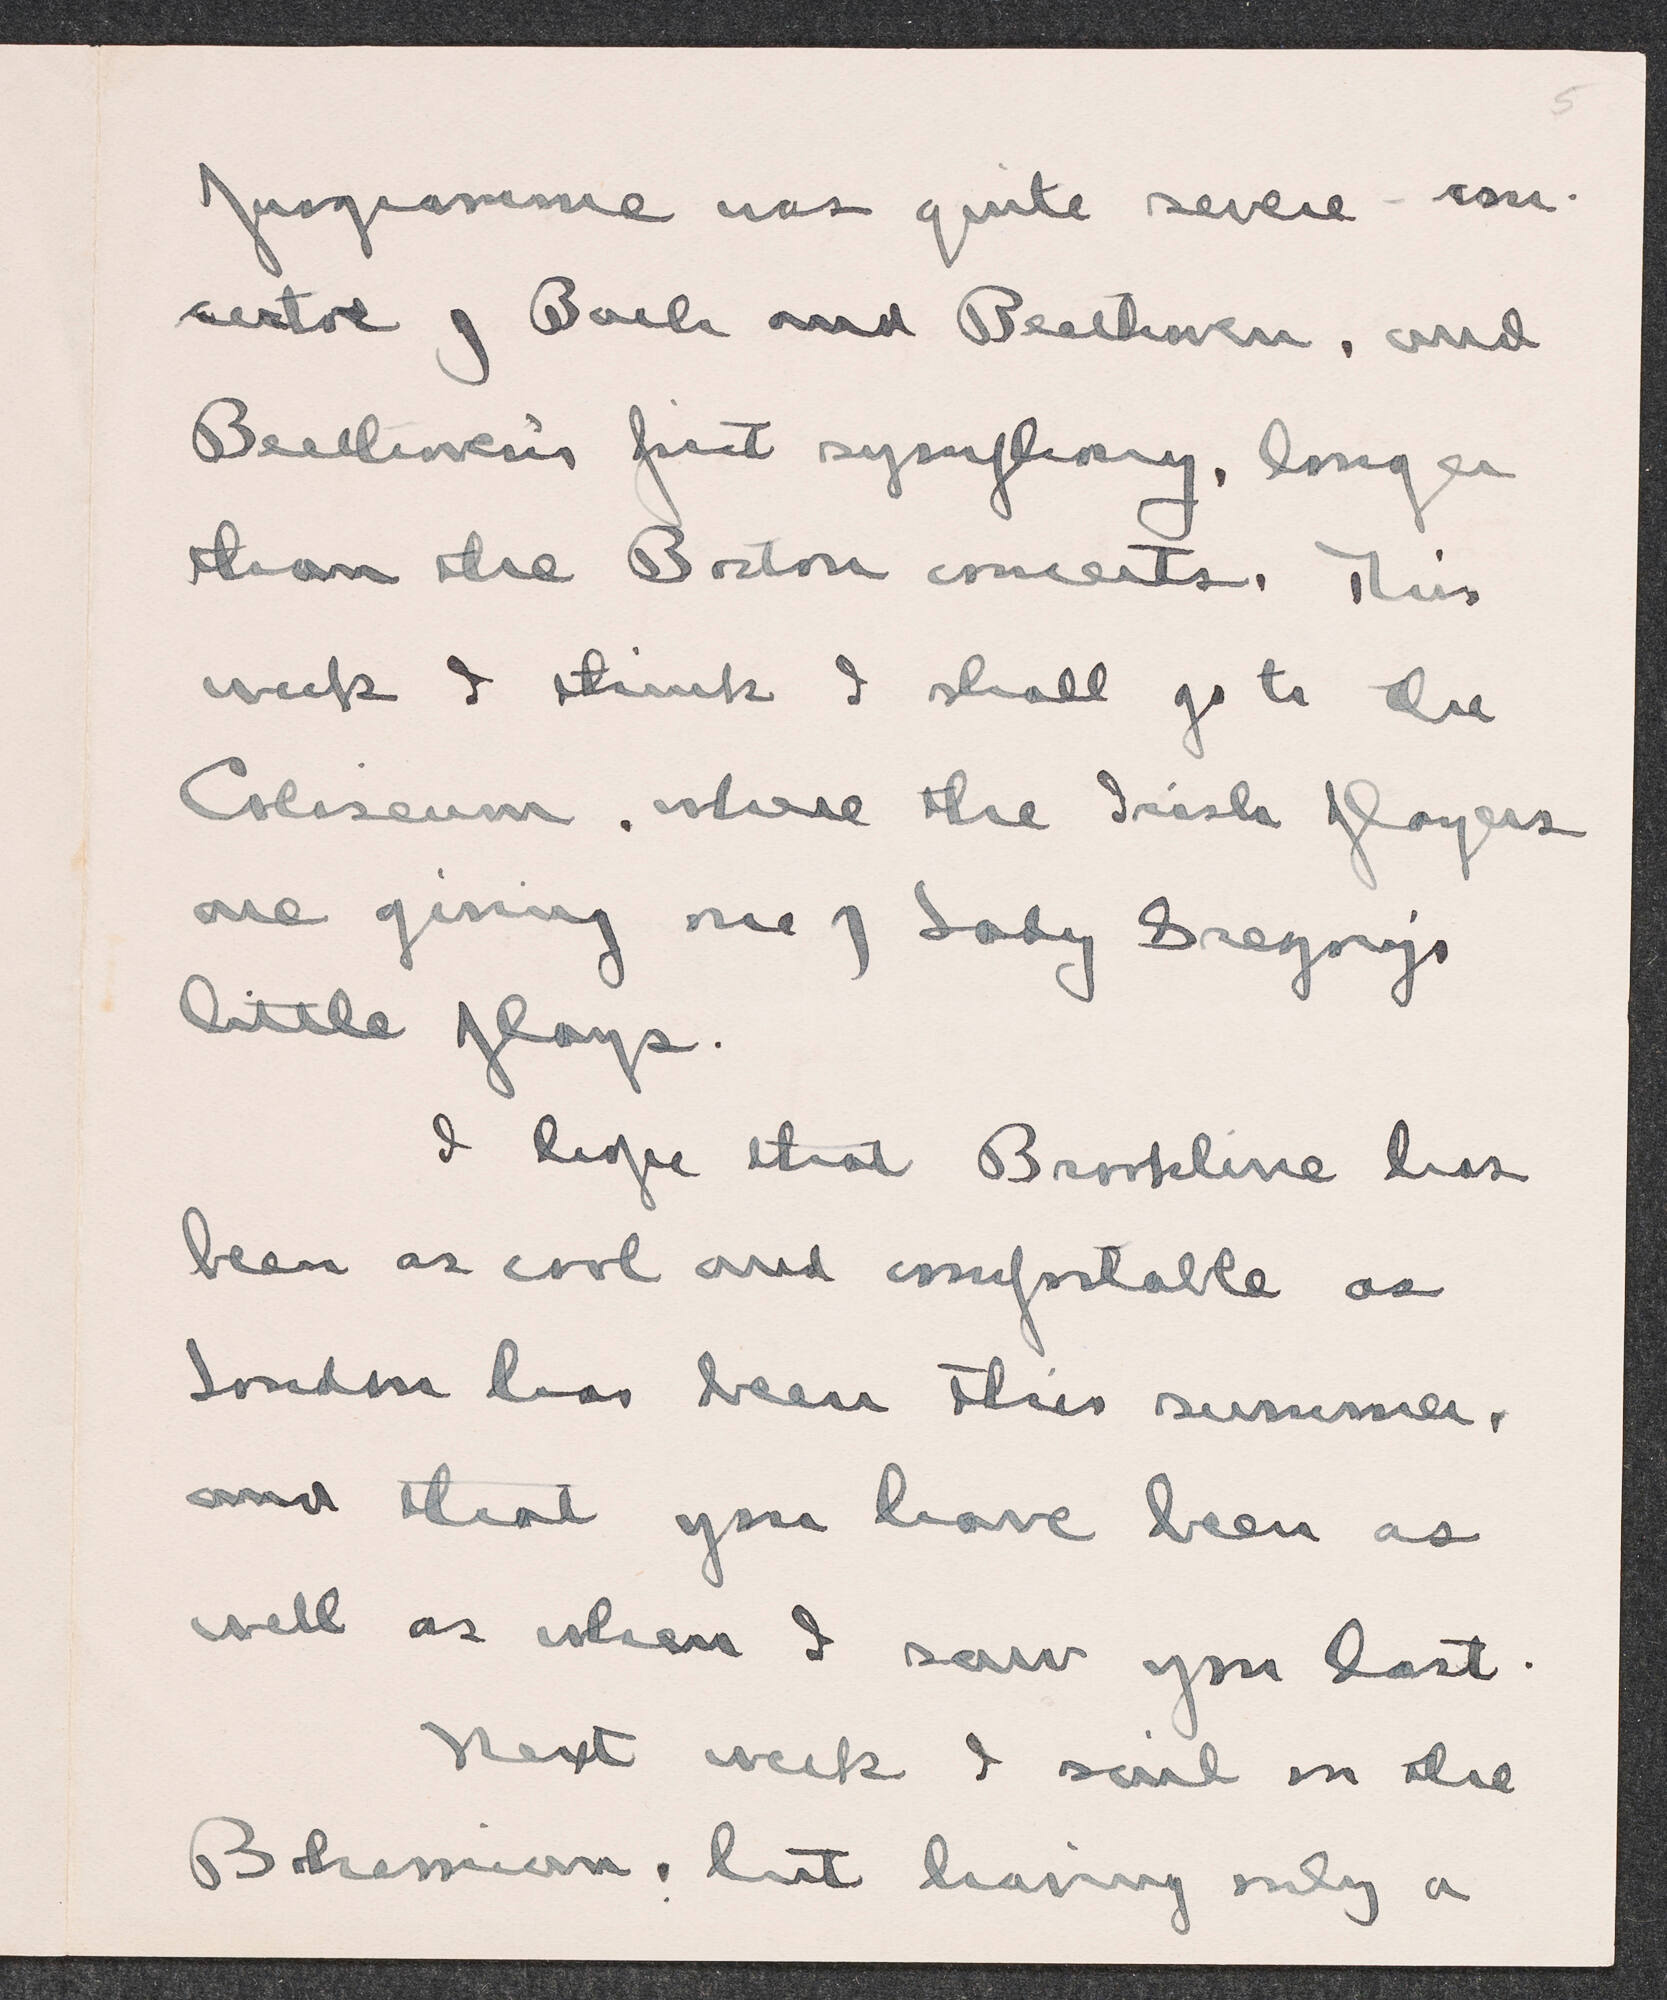 5
programme was quite severe - con-
certos of Bach and Beethoven, and
Beethoven's first symphony, longer
than the Boston concerts. This
week I think I shall go to the
Coliseum, where the Irish players
are giving one of Lady Gregory's
little plays.
I hope that Brookline has
been as cool and comfortable as
London has been this summer,
and that you have been as
well as when I saw you last.
Next week I sail on the
Bohemian, but having only a